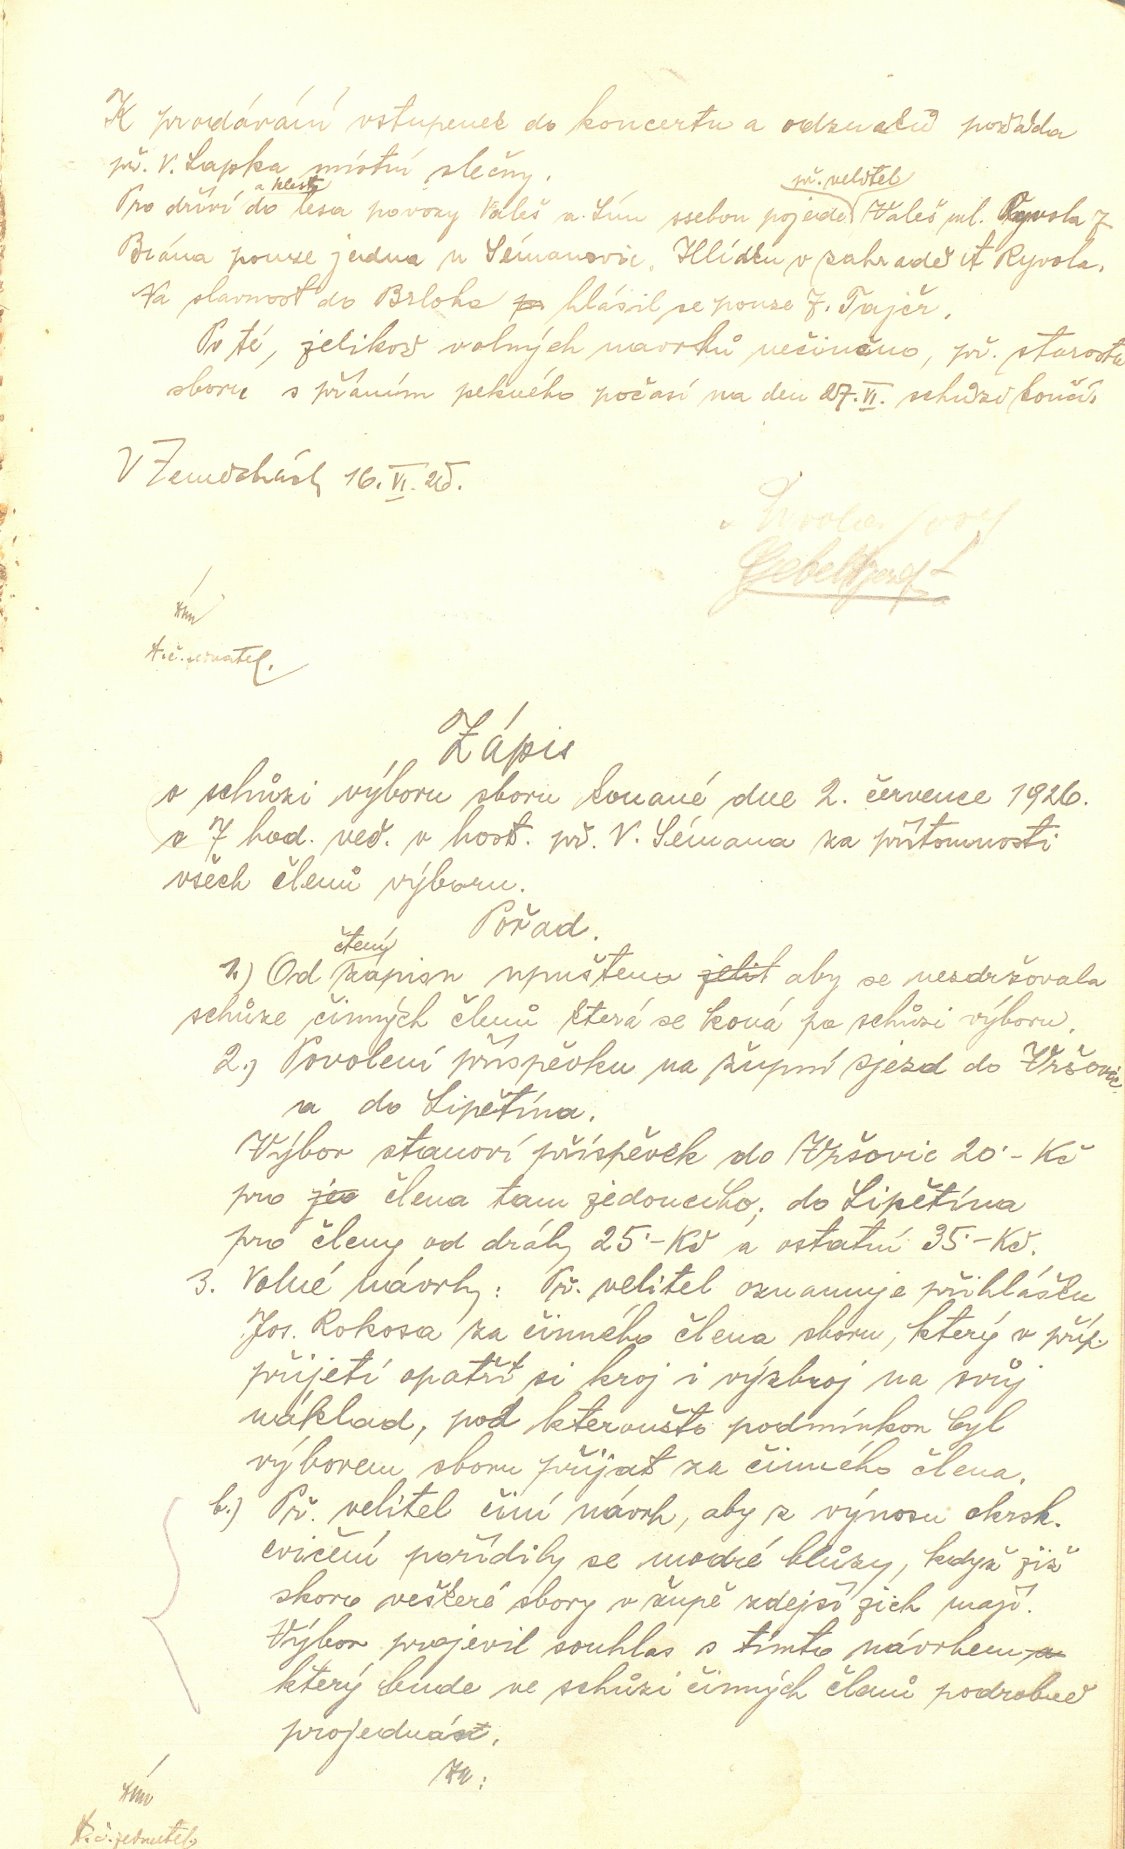 K prodávání vstupenek do koncertu a odznaků požádá
př. V. Lapka místní slečny.
a klestí př. velitel
Pro dříví do lesa povozy Valeš a Lín ssebou pojede Valeš ml. Ryvola J.
Brána pouze jedna u Sémanovic. Hlídku v zahradě A Ryvola.
Na slavnost do Brloha hlásil se pouze J. Tajčr.
Po té, jelikož volných navrhů nečiněno, př. starosta
sboru s přáním pekného počasí na den 27. VI. schůzi končí.
V Zeměchách 16. VI. 26.
Ryvola Josef
Gebelt Josef
Lín
t.č. jednatel.
Zápis
o schůzi výboru sboru konané dne 2. července 1926.
v 7 hod. več. v host. př. V. Sémana za přítomnosti
všech členů výboru.
Pořad.
čtený
1.) Od zápisu upuštěno jelik aby se nezdržovala
schůze činných členů která se koná po schůzi výboru.
2.) Povolení příspěvku na župní sjezd do Vršovic
a do Lipětína.
Výbor stanoví příspěvek do Vršovic 20·- Kč
pro jeo člena tam jedoucího; do Lipětína
pro členy od dráhy 25·- Kč a ostatní 35·- Kč.
3. Volné návrhy: Př. velitel oznamuje přihlášku
Jos. Rokosa za činného člena sboru, který v příp.
přijetí opatří si kroj i výzbroj na svůj
náklad, pod kteroužto podmínkou byl
výborem sboru přijat za činného člena.
b.) Př. velitel činí návrh, aby z výnosu okrsk.
cvičení pořídily se modré blůzy, když již
skoro veškeré sbory v župě zdejší jich mají.
Výbor projevil souhlas s tímto návrhem a
který bude ve schůzi činných členů podrobně
projednán.
Za:
Lín
t.č. jednatel.